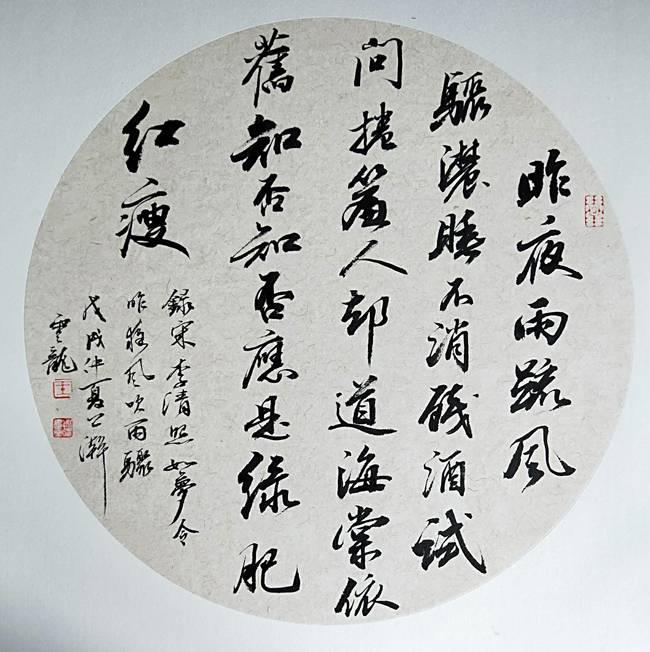 昨夜雨疏风
驟濃睡不消殘酒試
问捲簾人却道海棠依
舊知否知否應是绿肥
红瘦
録宋李清照如夢令
昨风吹雨驟
戊戌仲夏
雲龍